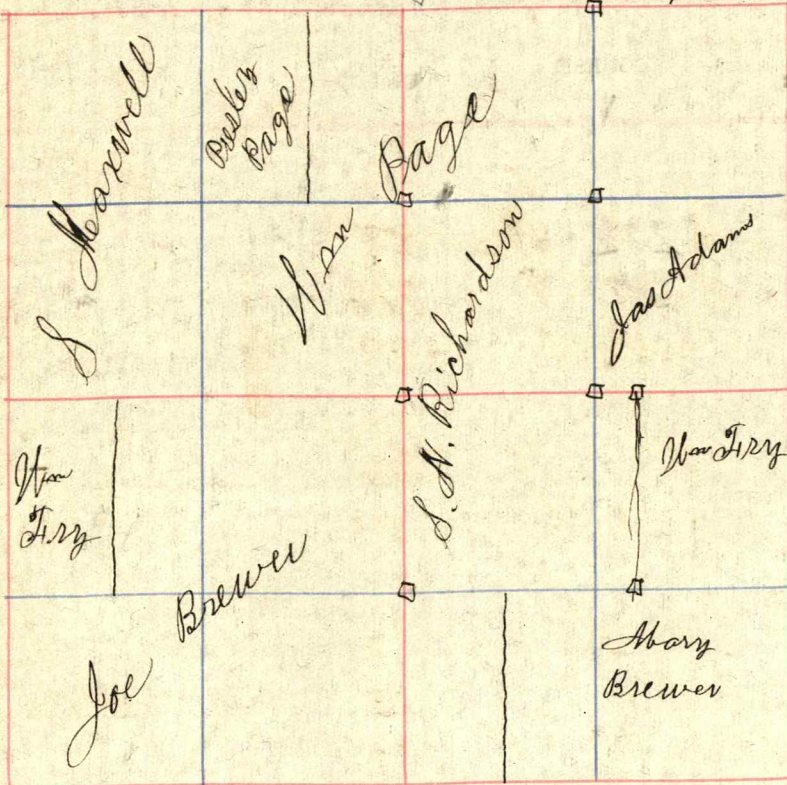 S Maxwell
Presley
Page
Wm Page
S. N. Richardson
Jas Adams
Wm
Fry
Wm Fry
Joe Brewer
Mary
Brewer